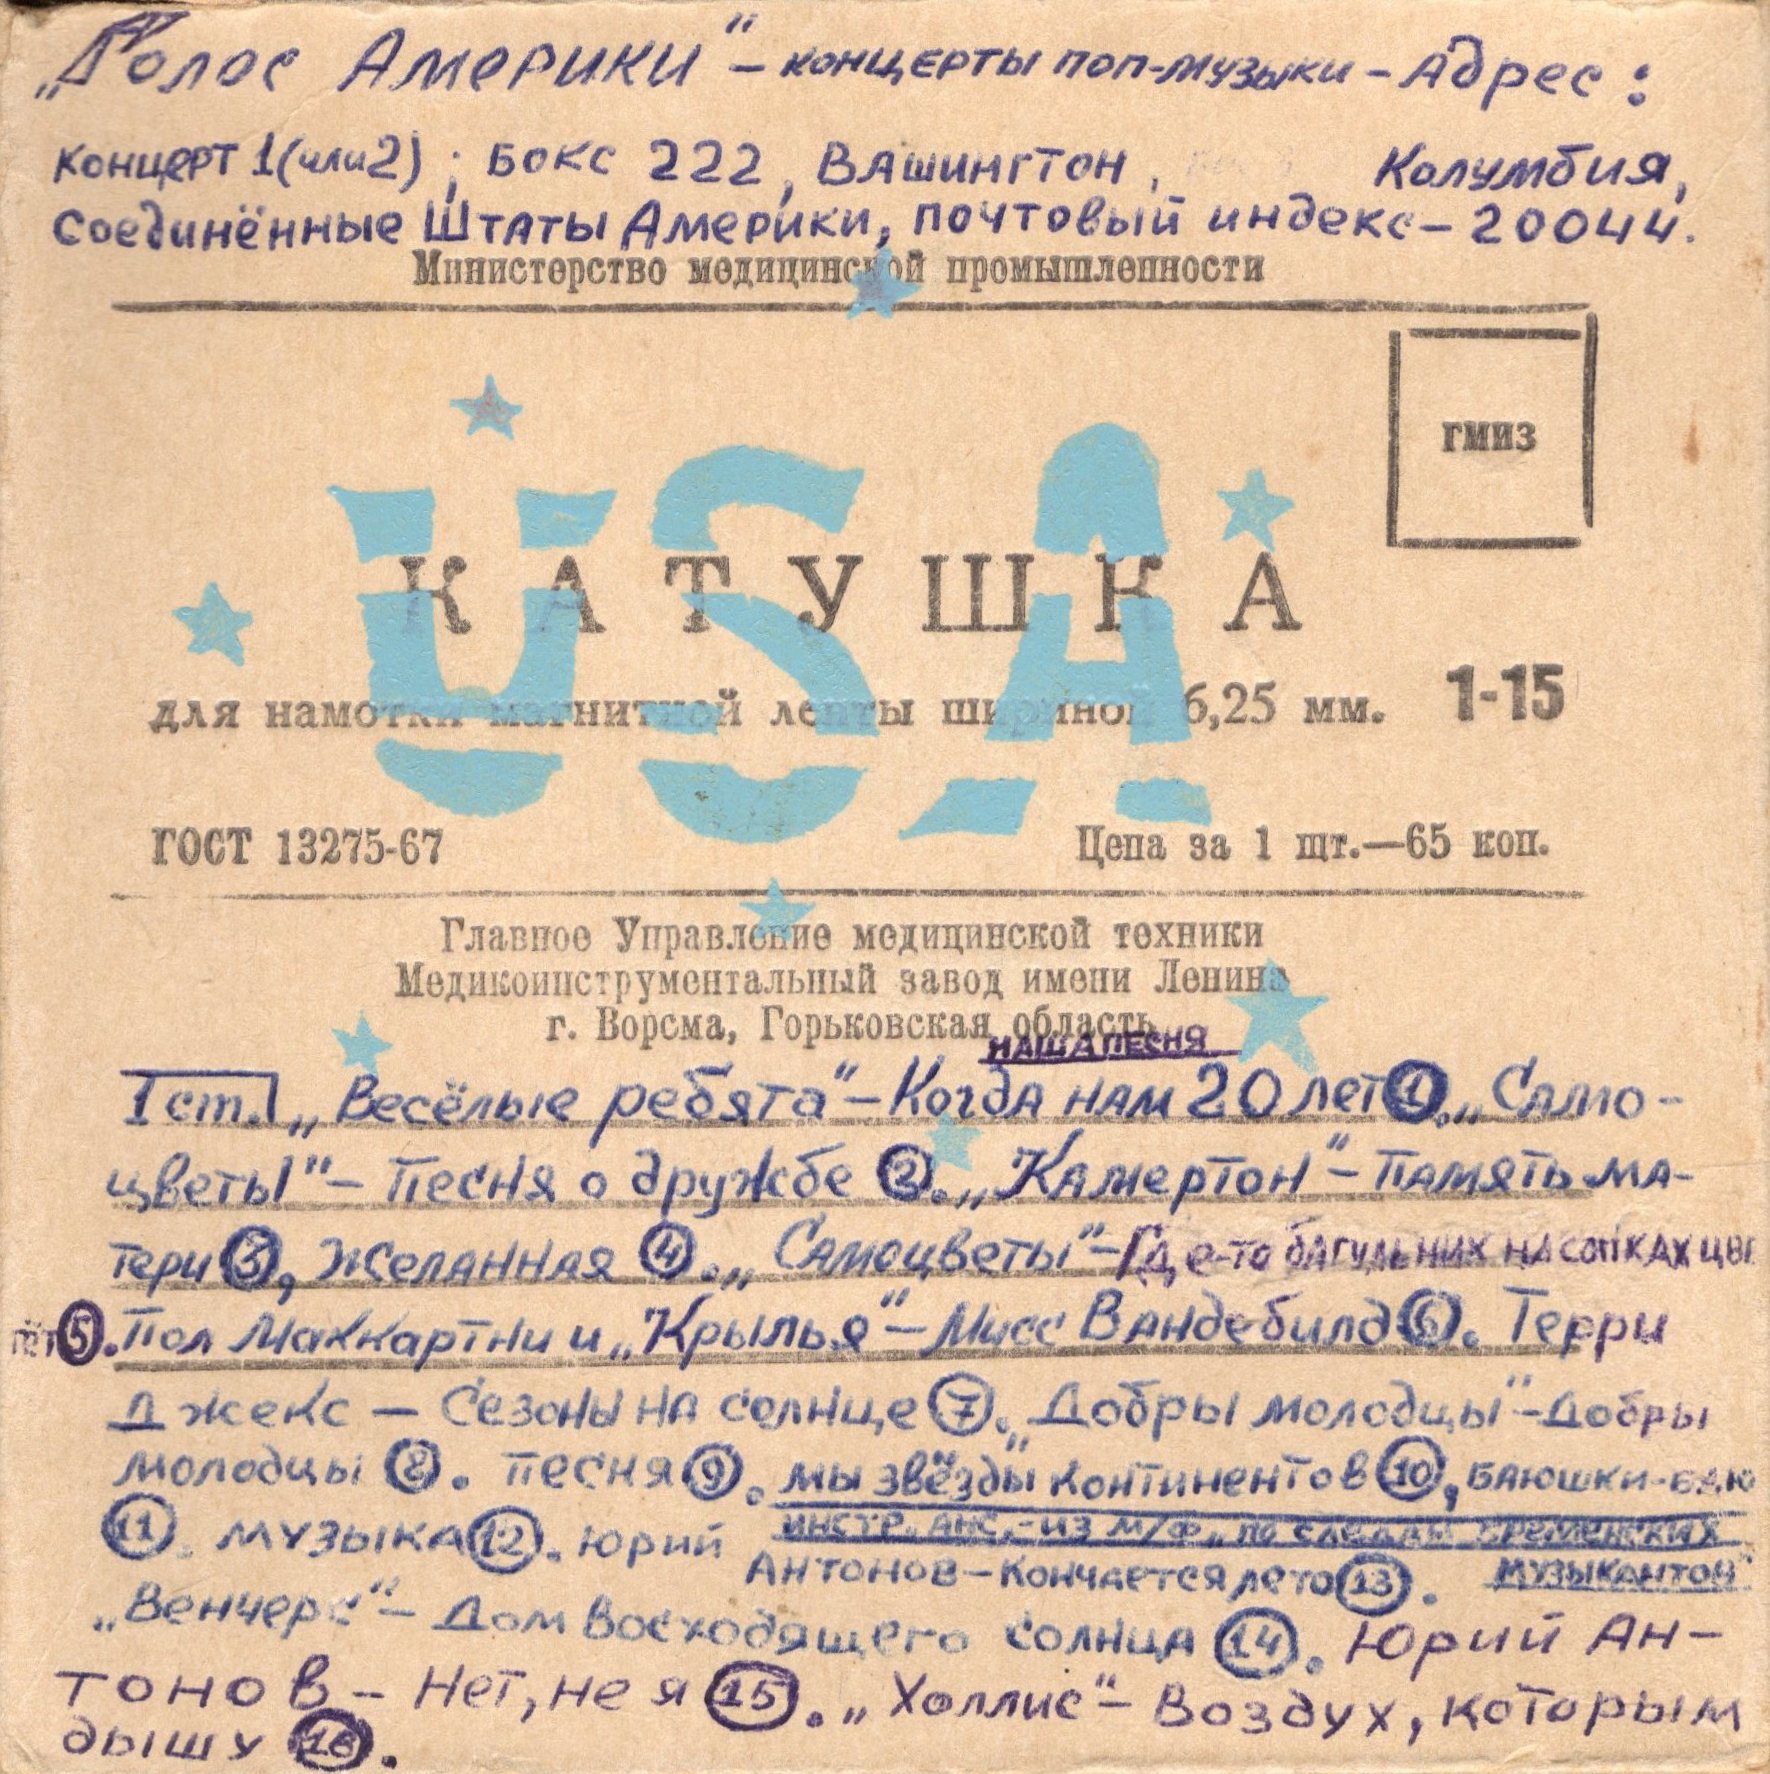 „Голос Америки" – концерты поп-музыки – Адрес:
концерт 1 (или 2); Бокс 222, Вашингтон, Колумбия,
Соединённые Штаты Америки, почтовый индекс – 20044.
Министерство медицинской промышленности
ГМИЗ
USA
КАТУШКА
для намотки магнитной ленты шириной 6,25 мм. 1-15
ГОСТ 13275-67 Цена за 1 шт.—65 коп.
Главное Управление медицинской техники
Медикоинструментальный завод имени Ленина
г. Ворсма, Горьковская область
НАША ПЕСНЯ
1 ст. „Весёлые ребята" – Когда нам 20 лет 1. „Само-
цветы" – Песня о дружбе 2. „Камертон" – Память ма-
тери 3, Желанная 4. „Самоцветы" – Где-то багульник на сопках цве
тёт 5. Пол Маккартни и „Крылья" – Мисс Вандебилд 6. Терри
Джекс – Сезоны на солнце 7. „Добры молодцы" – Добры
молодцы 8. Песня 9. „Мы звёзды континентов 10, Баюшки-баю
11. Музыка 12. Юрий
инстр. анс. – из м/ф „По следам бременских
музыкантов"
Антонов – Кончается лето 13.
„Венчерс" – Дом восходящего солнца 14. Юрий Ан-
тонов – Нет, не я 15. „Холлис" – Воздух, которым
дышу 16.